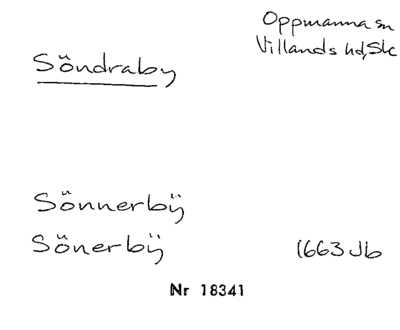 Oppmanna sn
Villands hd, Sk
Söndraby
Sönnerbÿ
Sönerbÿ 1663 Jb
Nr 18341